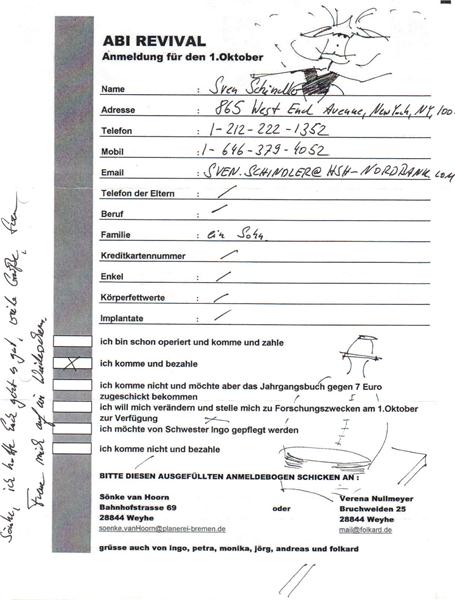 ABI REVIVAL
Anmeldung für den 1.Oktober
Name : Sven Schindler
Adresse : 865 West End Avenue, New York, NY, 100
Telefon : 1-212-222-1352
Mobil : 1-646-379-4052
Email : SVEN.SCHINDLER@HSH-NORDBANK.COM
Telefon der Eltern : /
Beruf : /
Familie : ein Sohn
Kreditkartennummer : /
Enkel : /
Körperfettwerte : /
Implantate : /
ich bin schon operiert und komme und zahle
X ich komme und bezahle
ich komme nicht und möchte aber das Jahrgangsbuch gegen 7 Euro
zugeschickt bekommen
ich will mich verändern und stelle mich zu Forschungszwecken am 1.Oktober
zur Verfügung
ich möchte von Schwester Ingo gepflegt werden
ich komme nicht und bezahle
BITTE DIESEN AUSGEFÜLLTEN ANMELDEBOGEN SCHICKEN AN :
Sönke van Hoorn
Bahnhofstrasse 69
28844 Weyhe
soenke.vanHoorn@planerei-bremen.de
oder
Verena Nullmeyer
Bruchweiden 25
28844 Weyhe
mail@folkard.de
grüsse auch von ingo, petra, monika, jörg, andreas und folkard
Sönke, ich hoffe Euch geht es gut, viele Grüße,
Freue mich auf ein Wiedersehen.